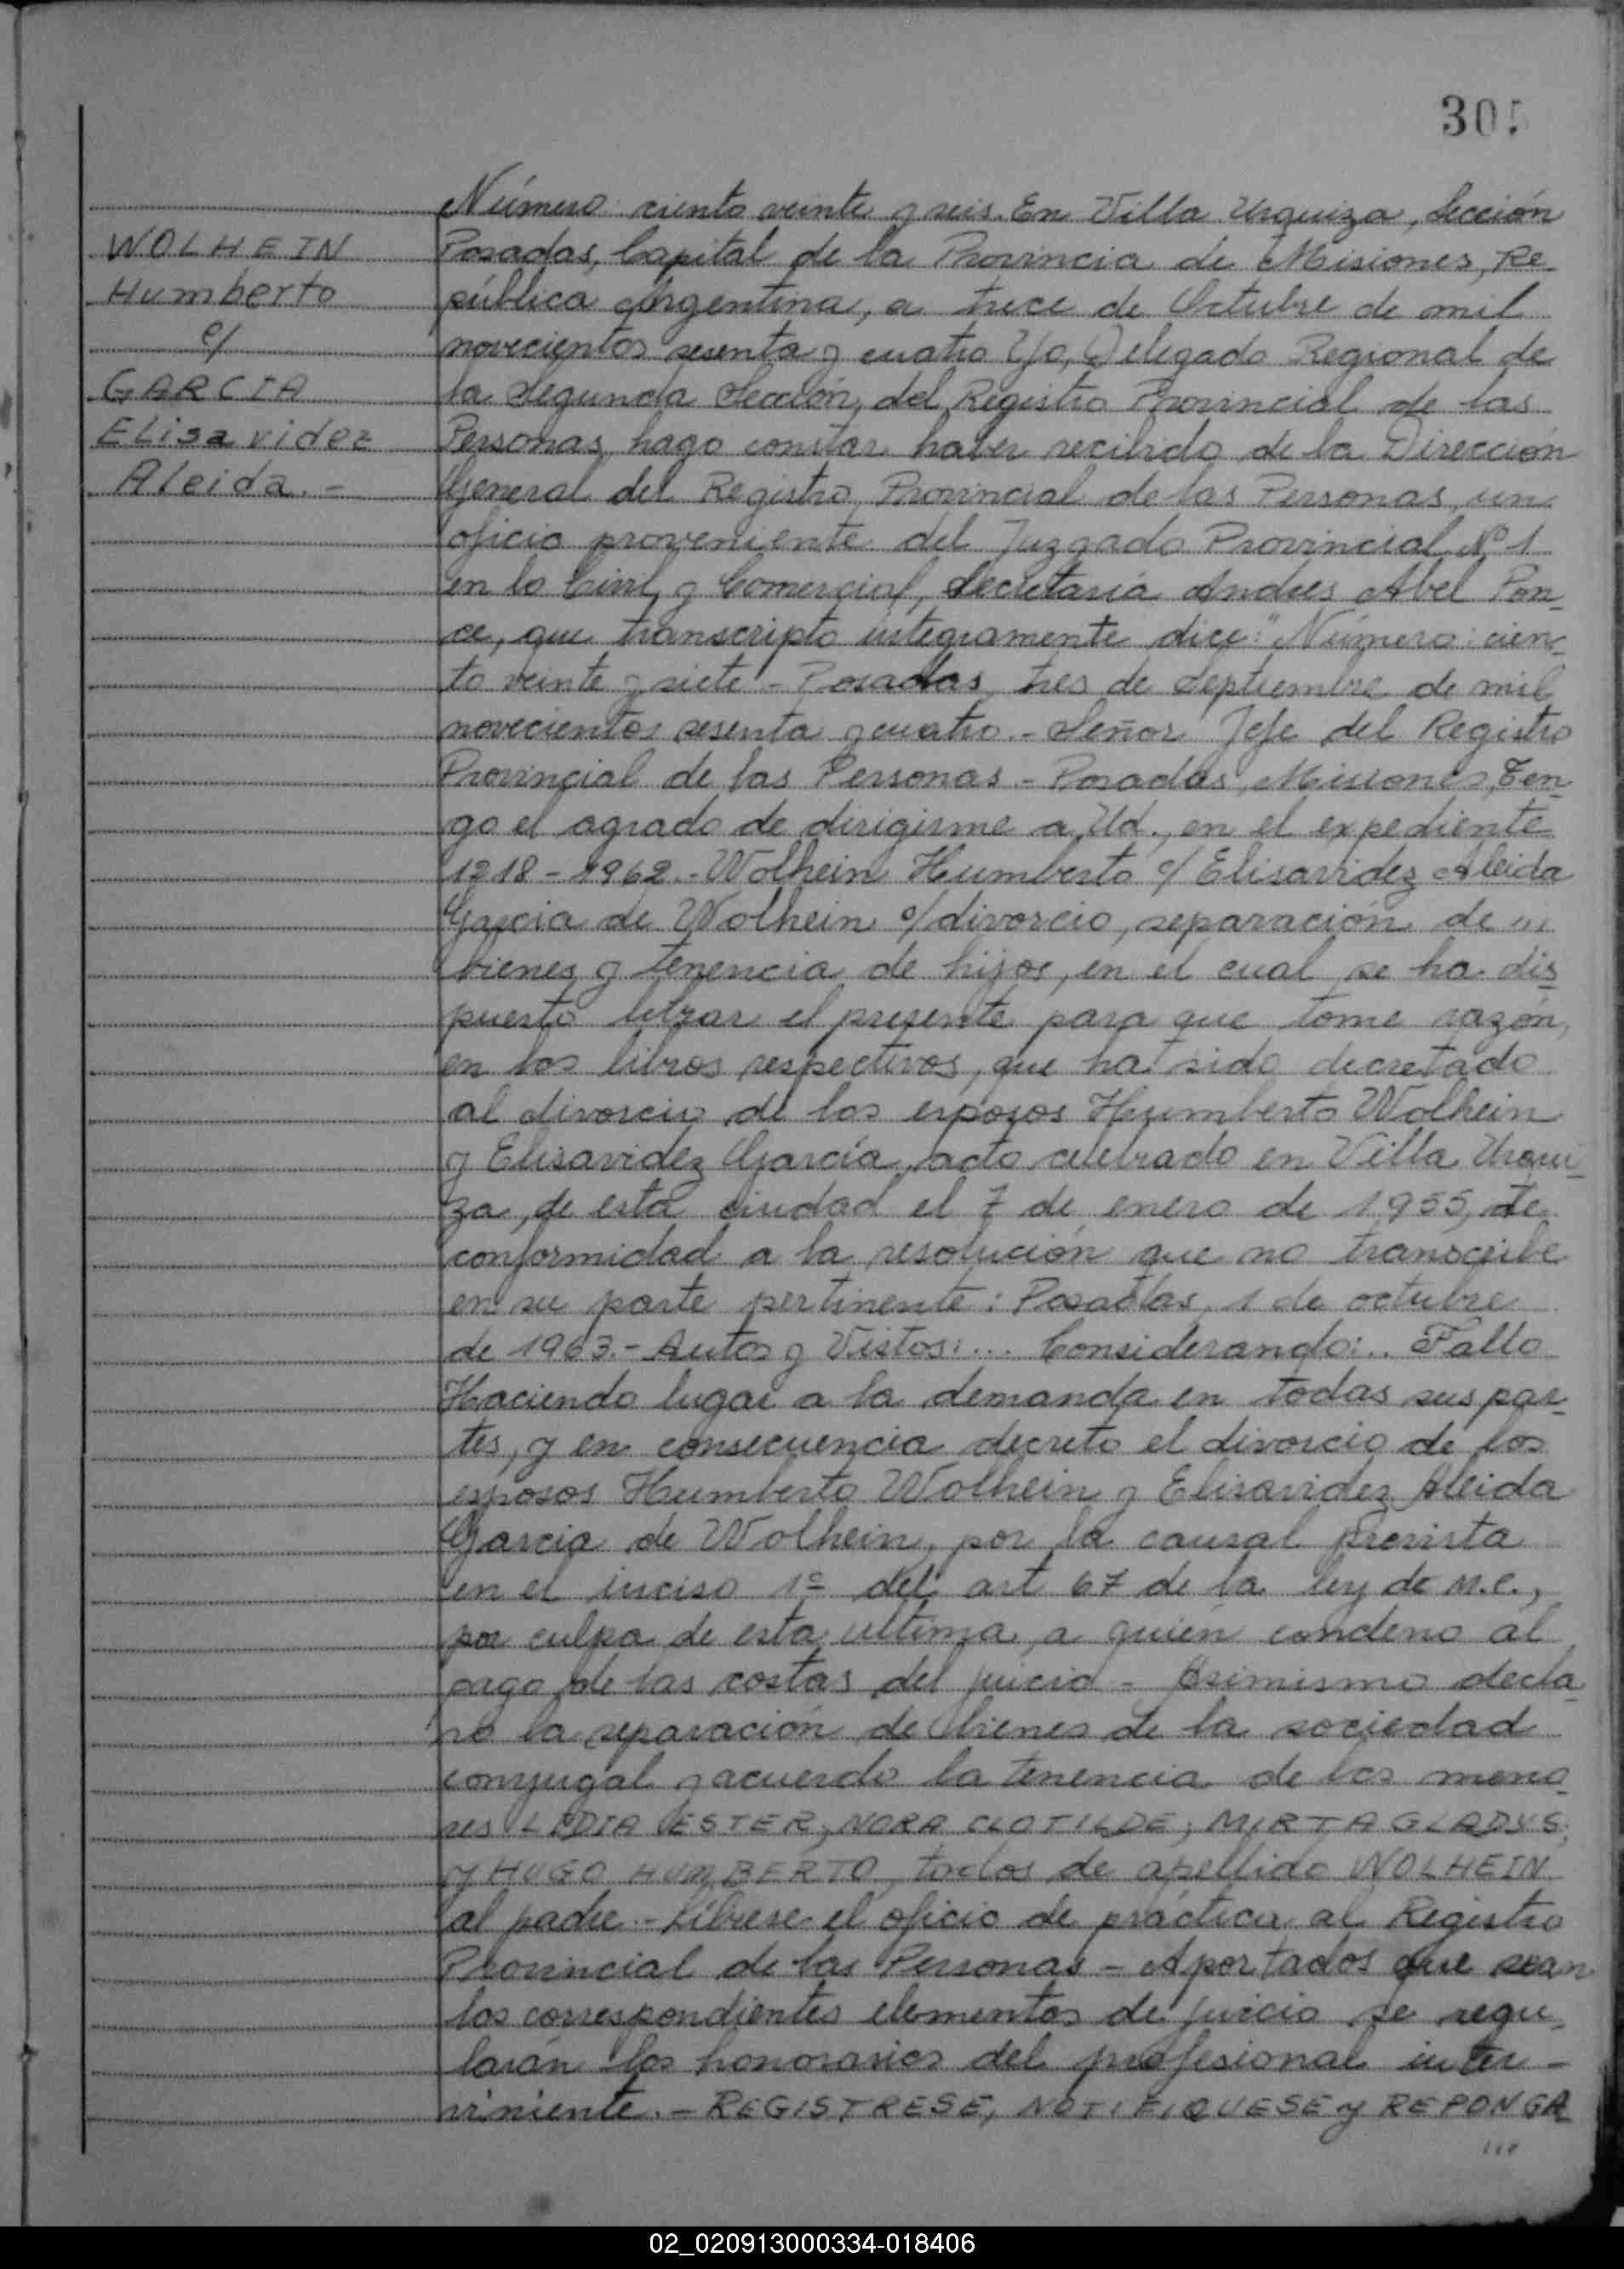 305
WOLHEIN
Humberto
c/
GARCIA
Elisavidez
Aleida.-
Número: ciento veinte y seis. En Villa Urquiza, Sección
Posadas, Capital de la Provincia de Misiones, Re-
pública Argentina, a trece de Octubre de mil
novecientos sesenta y cuatro Yo, Delegado Regional de
la Segunda Sección, del Registro Provincial de las
Personas, hago constar haber recibido de la Dirección
General del Registro Provincial de las Personas, un
oficio proveniente del Juzgado Provincial Nº 1
en lo Civil y Comercial, Secretaría Andres Abel Pon-
ce, que transcripto integramente dice: "Número: cien-
to veinte y siete - Posadas, tres de Septiembre de mil
novecientos sesenta y cuatro.- Señor Jefe del Registro
Provincial de las Personas - Posadas, Misiones, Ten-
go el agrado de dirigirme a Ud., en el expediente
1218-1962.- Wolhein Humberto c/ Elisavidez Aleida
Garcia de Wolhein s/divorcio, separación de ,,,
bienes y tenencia de hijos, en el cual se ha dis-
puesto librar el presente para que tome razón,
en los libros respectivos, que ha sido decretado
al divorcio de los esposos Humberto Wolhein
y Elisavidez García, acto celebrado en Villa Urqui-
za, de esta ciudad el 7 de enero de 1955, de
conformidad a la resolución que no transcribe
en su parte pertinente: Posadas, 1 de octubre
de 1963.- Autos y Vistos:... Considerando:.. Fallo
Haciendo lugar a la demanda en todas sus par-
tes, y en consecuencia decreto el divorcio de los
esposos Humberto Wolhein y Elisavidez Aleida
Garcia de Wolhein, por la causal prevista
en el inciso 1º del art 67 de la ley de M.C.,
por culpa de esta ultima, a quien condeno al
pago de las costas del juicio - Asimismo decla-
ro la separación de bienes de la sociedad
conyugal y acuerdo la tenencia de los meno-
res LIDIA ESTER, NORA CLOTILDE, MIRTA GLADYS,
y HUGO HUMBERTO, todos de apellido WOLHEIN
al padre.- Líbrese el oficio de práctica al Registro
Provincial de las Personas - Aportados que sean
los correspondientes elementos de juicio se regu-
larán los honorarios del profesional inter-
viniente.- REGISTRESE, NOTIFIQUESE y REPONGA
,,,
02_020913000334-018406